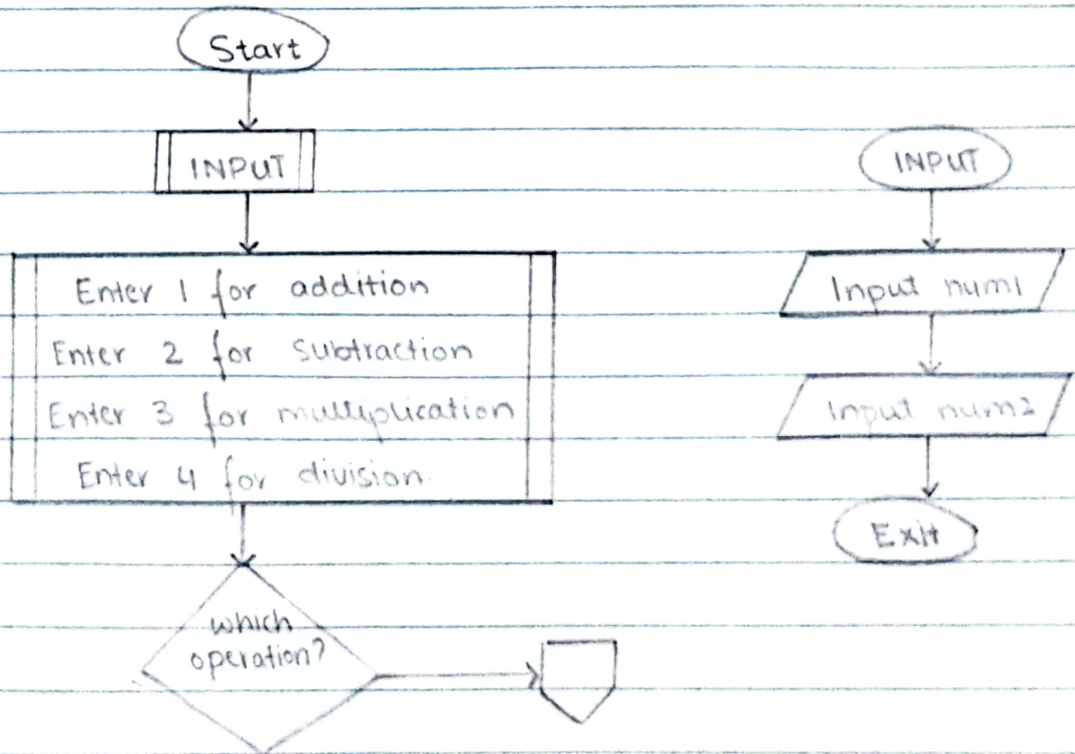 Start
INPUT
Enter 1 for addition
Enter 2 for subtraction
Enter 3 for multiplication
Enter 4 for division
which
operation?
INPUT
Input num1
Input num2
Exit